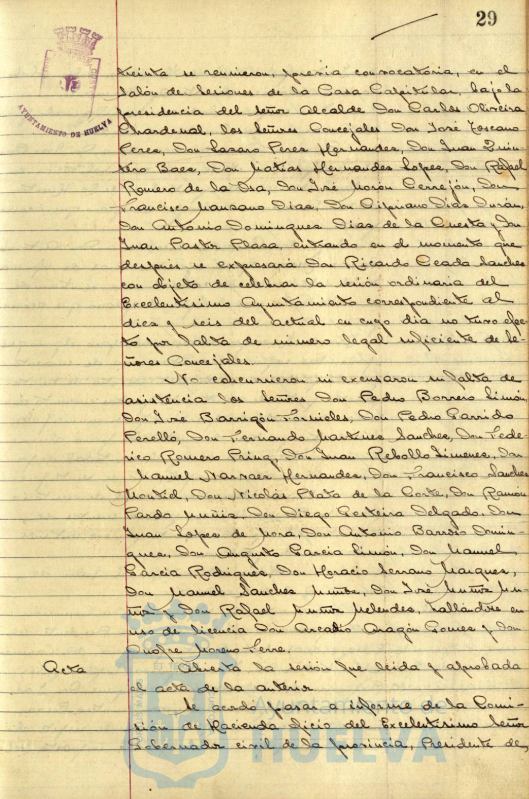 29
AYUNTAMIENTO DE HUELVA
treinta se reunieron, previa convocatoria, en el
Salón de Sesiones de la Casa Capitular, bajo la
presidencia del señor Alcalde Don Carlos Oliveira
Chardenal, los señores Concejales Don José Toscano
Perez, Don Lazaro Perez Hernandez, Don Juan Quin-
tero Baez, Don Matias Hernandez Lopez, Don Rafael
Romero de la Osa, Don José Morón Cerrejón, Don
Francisco Manzano Dias, Don Cipriano Dias Durán,
Don Antonio Dominguez Dias de la Cuesta y Don
Juan Pastor Plaza, entrando en el momento que
después se expresará Don Ricardo Ceada Sanchez
con objeto de celebrar la sesión ordinaria del
Excelentísimo Ayuntamiento correspondiente al
diez y seis del actual en cuyo dia no tuvo efec-
to por falta de número legal suficiente de Se-
ñores Concejales.
No concurrieron ni excusaron su falta de
asistencia los señores Don Pedro Borrero Limón,
Don José Barrigón Fornieles, Don Pedro Garrido
Perelló, Don Fernando Martinez Sanchez, Don Fede-
rico Romero Prina, Don Juan Rebollo Jimenez, Don
Manuel Narvaez Hernandez, Don Francisco Sanchez
Montiel, Don Nicolás Plata de la Corte, Don Ramon
Pardo Muñiz, Don Diego Gesteira Delgado, Don
Juan Lopez de Mora, Don Antonio Barroso Domin-
guez, Don Augusto Garcia Limón, Don Manuel
Garcia Rodriguez, Don Horacio Serrano Marquez,
Don Manuel Sanchez Muñoz, Don José Muñoz Mu-
ñoz y Don Rafael Muñoz Melendez, hallándose en
uso de licencia Don Arcadio Aragón Gomez y Don
Onofre Moreno Ferre.
Acta Abierta la sesión fue leida y aprobada
el acta de la anterior.
Se acordó pasar a informe de la Comi-
sión de Hacienda oficio del Excelentísimo Señor
Gobernador civil de la provincia, Presidente de
Ayuntamiento de
HUELVA